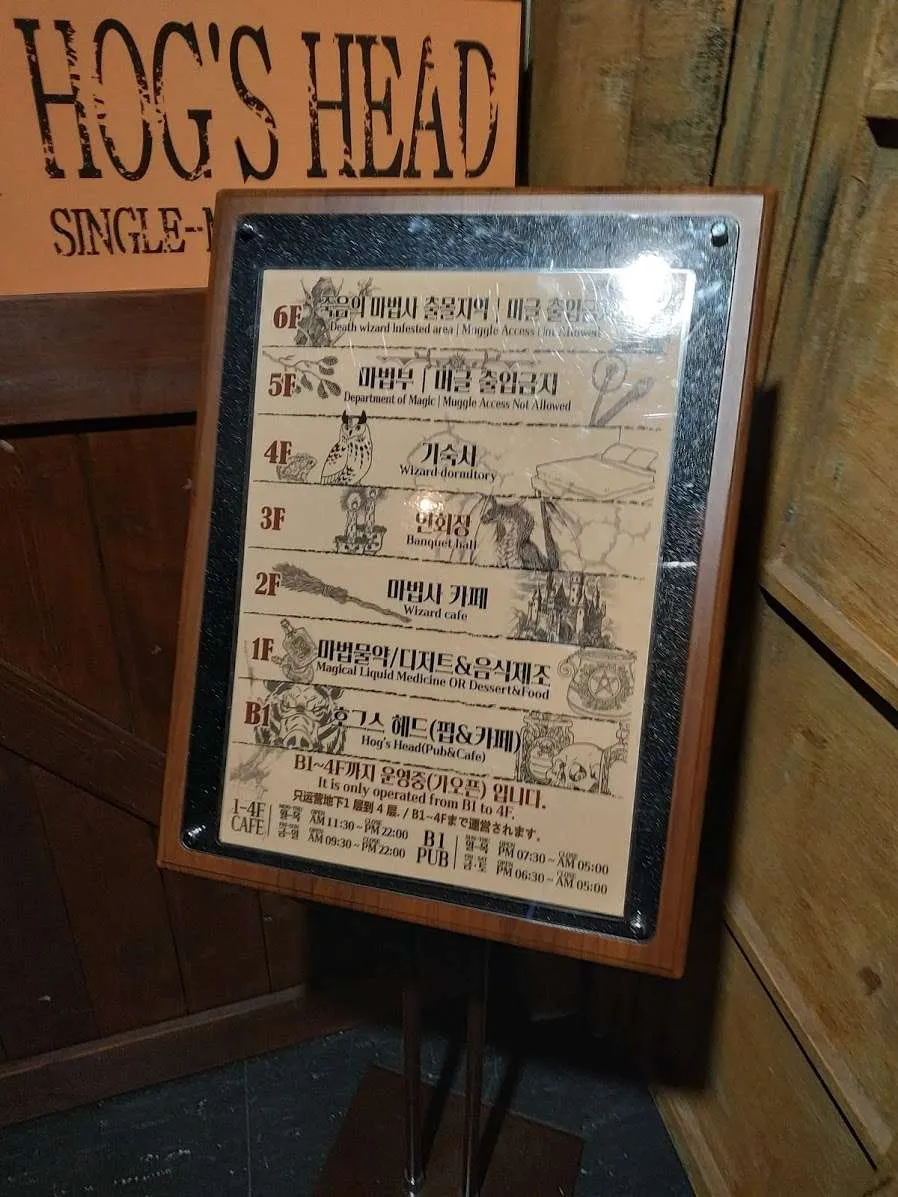 HOG'S HEAD
SINGLE-
6F 죽음의 마법사 출몰지역 | 머글 출입금
Death wizard Infested area | Muggle Access Not Allowed
5F 마법부 | 머글 출입금지
Department of Magic | Muggle Access Not Allowed
4F 기숙사
Wizard dormitory
3F 연회장
Banquet hall
2F 마법사 카페
Wizard cafe
1F 마법물약/디저트&음식제조
Magical Liquid Medicine OR Dessert&Food
B1 호그스 헤드(펍&카페)
Hog's Head(Pub&Cafe)
B1~4F까지 운영중(가오픈) 입니다.
It is only operated from B1 to 4F.
只运营地下1 层到 4 层. / B1~4Fまで運営されます.
1~4F CAFE
월-목 OPEN AM 11:30 ~ CLOSE PM 22:00
금-일 OPEN AM 09:30 ~ CLOSE PM 22:00
B1 PUB
월-목 OPEN PM 07:30 ~ CLOSE AM 05:00
금·토 OPEN PM 06:30 ~ CLOSE AM 05:00